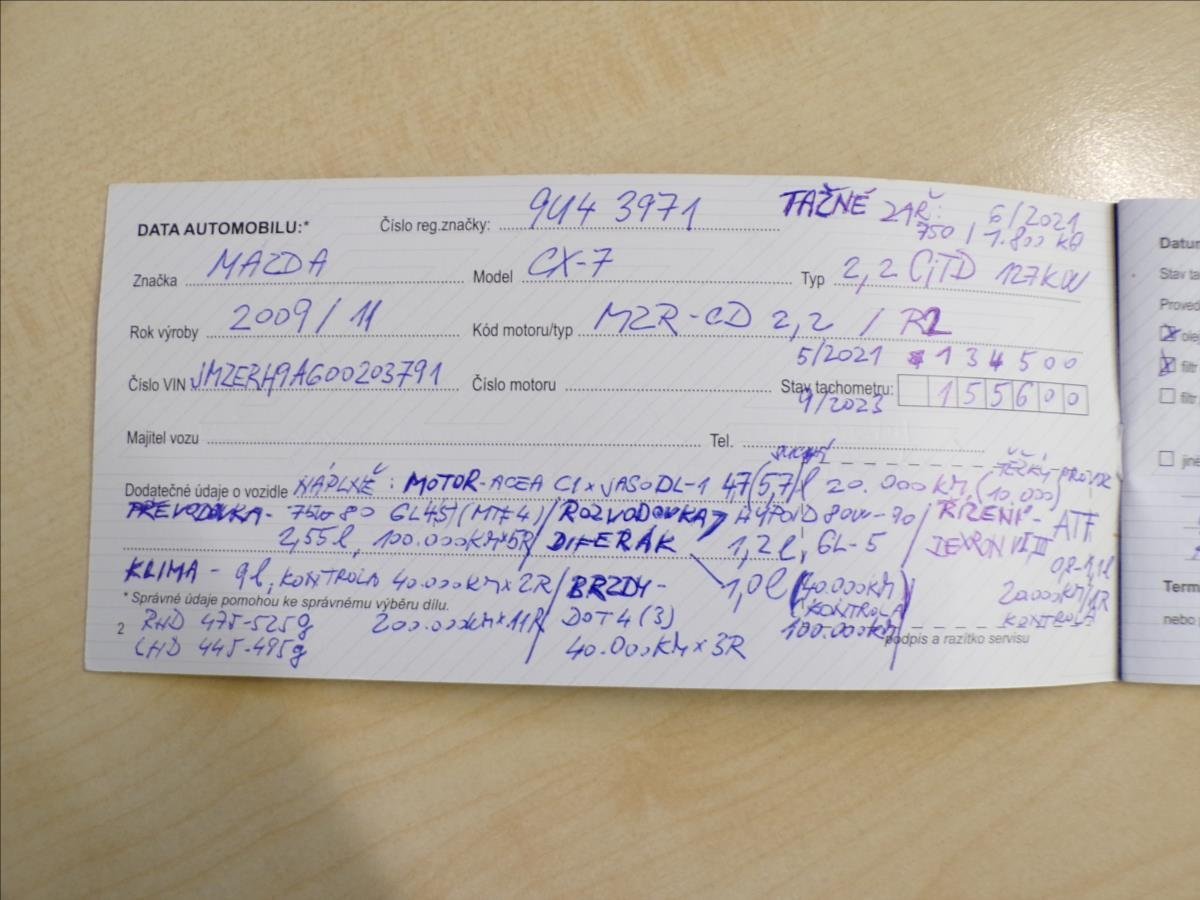 DATA AUTOMOBILU:* Číslo reg.značky: 9U4 3971 TAŽNÉ ZAŘ: 6/2021
750 / 1.800 kg
Značka MAZDA Model CX-7 Typ 2,2 CiTD 127KW
Rok výroby 2009/11 Kód motoru/typ MZR-CD 2,2 / R2
5/2021 134500
Číslo VIN JMZERH9A600203791 Číslo motoru Stav tachometru: 155600
9/2023
Majitel vozu Tel.
SUCHÝ TĚŽKÝ PROVOZ
Dodatečné údaje o vozidle NÁPLNĚ: MOTOR-ACEA C1 x JASO DL-1 4,7(5,7)l 20.000KM (10.000)
PŘEVODOVKA- 75W80 GL4,5/(MT4)/ROZVODOVKA HYPOID 80W-90 / ŘÍZENÍ - ATF
2,55l, 100.000KM×5R/ DIFERÁK 1,2l, GL-5 DEXRON III
0,8-1,1l
KLIMA - 9l, KONTROLA 40.000KM×2R/BRZDY- 1,0l (40.000KM) 20.000KM/1R
* Správné údaje pomohou ke správnému výběru dílu. (KONTROLA KONTROLA
2 RHD 475-525g 200.000KM×11R DOT4(3) 100.000KM
podpis a razítko servisu
LHD 445-495g 40.000KM×3R
Datum
Stav ta
Proved
olej
filtr
filtr
jiné
Term
nebo